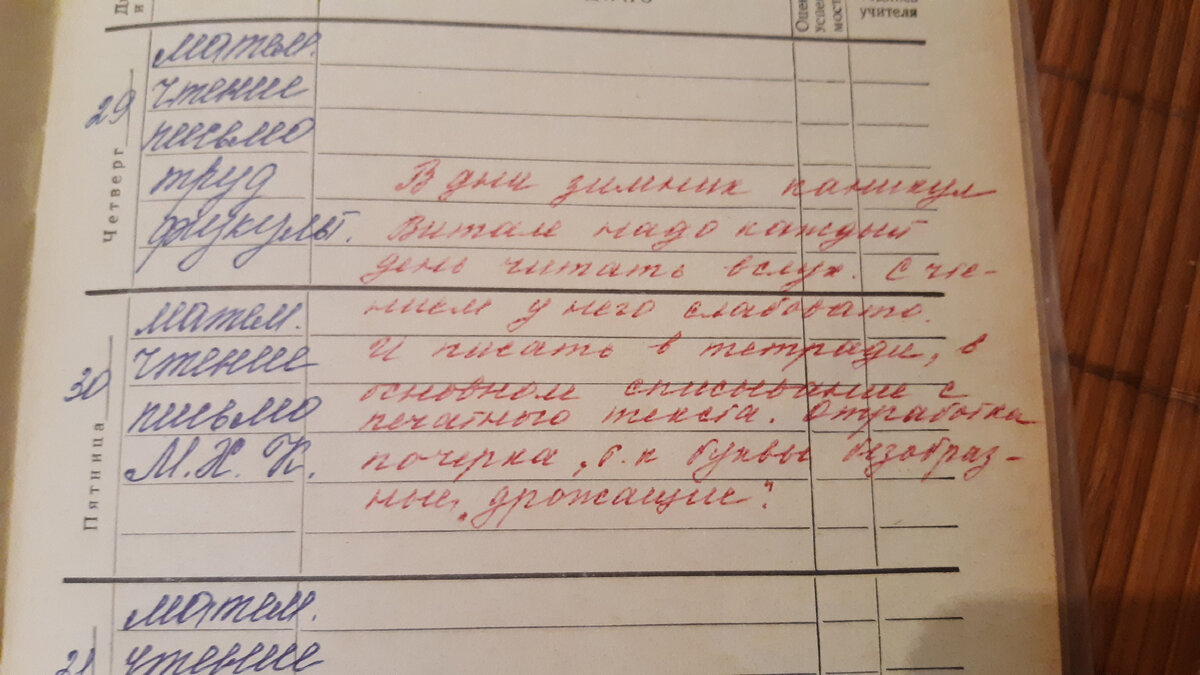 Оцен
успев
мост
учителя
Четверг
29
матем.
чтение
письмо
труд
физкульт.
В дни зимних каникул
Витале надо каждый
день читать вслух. С чте-
нием у него слабовато.
Пятница
30
матем.
чтение
письмо
М.Х.К.
И писать в тетради, в
основном списывание с
печатного текста. Отработка
почерка, т.к буквы безобраз-
ные, "дрожащие".
31
матем.
чтение